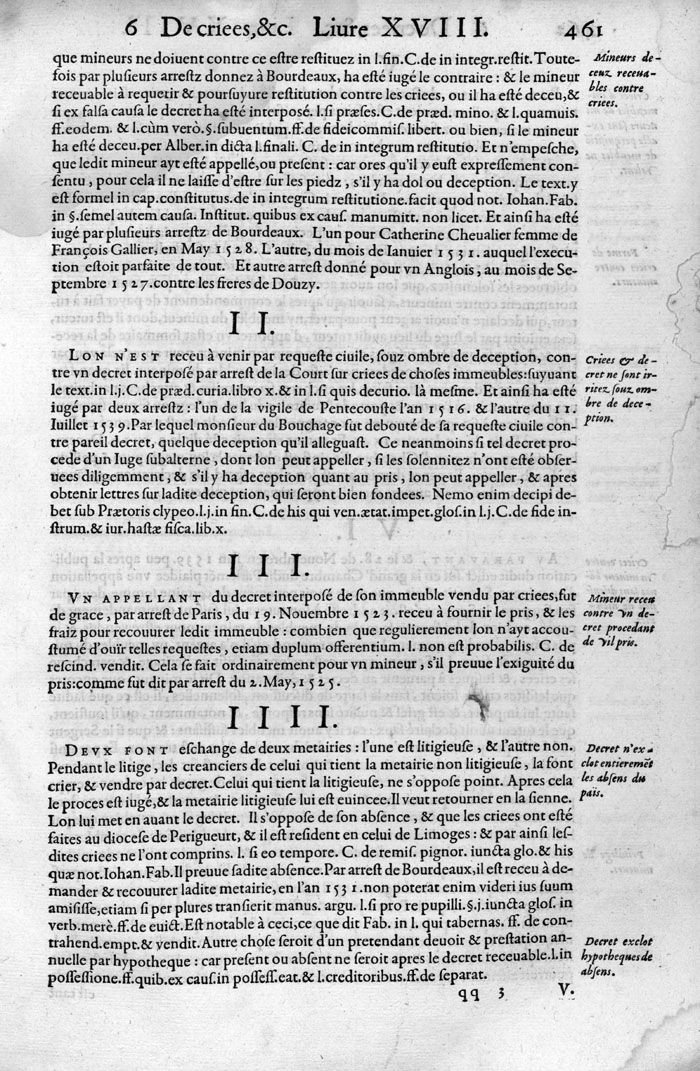 6 De criees, &c. Liure XVIII. 461
que mineurs ne doiuent contre ce estre restituez in l.fin.C.de in integr.restit. Toute-
fois par plusieurs arrestz donnez à Bourdeaux, ha esté iugé le contraire : & le mineur
receuable à requerir & poursuyure restitution contre les criees, ou il ha esté deceu,&
si ex falsa causa le decret ha esté interposé. l.si præses.C.de præd. mino. & l.quamuis.
ff.eodem. & l.cùm verò.§.subuentum.ff.de fideicommis. libert. ou bien, si le mineur
ha esté deceu.per Alber.in dicta l.finali. C. de in integrum restitutio. Et n'empesche,
que ledit mineur ayt esté appellé,ou present : car ores qu'il y eust expressement con-
sentu, pour cela il ne laisse d'estre sur les piedz, s'il y ha dol ou deception. Le text.y
est formel in cap.constitutus.de in integrum restitutione.facit quod not. Iohan. Fab.
in §.semel autem causa. Institut. quibus ex caus. manumitt. non licet. Et ainsi ha esté
iugé par plusieurs arrestz de Bourdeaux. L'un pour Catherine Cheualier femme de
François Gallier, en May 1528. L'autre, du mois de Ianuier 1531. auquel l'execu-
tion estoit parfaite de tout. Et autre arrest donné pour vn Anglois, au mois de Se-
ptembre 1527.contre les freres de Douzy.
Mineurs de-
ceuz receua-
bles contre
criees.
II.
LON N'EST receu à venir par requeste ciuile, souz ombre de deception, con-
tre vn decret interposé par arrest de la Court sur criees de choses immeubles:suyuant
le text.in l.j.C.de præd.curia.libro x.& in l.si quis decurio. là mesme. Et ainsi ha esté
iugé par deux arrestz : l'un de la vigile de Pentecouste l'an 1516. & l'autre du 11.
Iuillet 1539.Par lequel monsieur du Bouchage fut debouté de sa requeste ciuile con-
tre pareil decret, quelque deception qu'il alleguast. Ce neanmoins si tel decret pro-
cede d'un Iuge subalterne, dont lon peut appeller, si les solennitez n'ont esté obser-
uees diligemment, & s'il y ha deception quant au pris, lon peut appeller, & apres
obtenir lettres sur ladite deception, qui seront bien fondees. Nemo enim decipi de-
bet sub Prætoris clypeo.l.j.in fin.C.de his qui ven.ætat.impet.glos.in l.j.C.de fide in-
strum.& iur.hastæ fisca.lib.x.
Criees & de-
cret ne sont ir-
ritez souz om-
bre de dece-
ption.
III.
VN APPELLANT du decret interposé de son immeuble vendu par criees,fut
de grace, par arrest de Paris, du 19. Nouembre 1523. receu à fournir le pris, & les
fraiz pour recouurer ledit immeuble : combien que regulierement lon n'ayt accou-
stumé d'ouïr telles requestes, etiam duplum offerentium. l. non est probabilis. C. de
rescind. vendit. Cela se fait ordinairement pour vn mineur, s'il preuue l'exiguité du
pris:comme fut dit par arrest du 2.May,1525.
Mineur receu
contre vn de-
cret procedant
de vil pris.
IIII.
DEVX FONT eschange de deux metairies : l'une est litigieuse, & l'autre non.
Pendant le litige, les creanciers de celui qui tient la metairie non litigieuse, la font
crier, & vendre par decret.Celui qui tient la litigieuse, ne s'oppose point. Apres cela
le proces est iugé,& la metairie litigieuse lui est euincee.Il veut retourner en la sienne.
Lon lui met en auant le decret. Il s'oppose de son absence, & que les criees ont esté
faites au diocese de Perigueurt, & il est resident en celui de Limoges : & par ainsi les-
dites criees ne l'ont comprins. l. si eo tempore. C. de remis. pignor. iuncta glo.& his
quæ not.Iohan.Fab.Il preuue sadite absence.Par arrest de Bourdeaux,il est receu à de-
mander & recouurer ladite metairie,en l'an 1531.non poterat enim videri ius suum
amisisse,etiam si per plures transierit manus. argu. l.si pro re pupilli.§.j.iuncta glos. in
verb.merè.ff.de euict.Est notable à ceci,ce que dit Fab. in l. qui tabernas. ff. de con-
trahend.empt.& vendit.Autre chose seroit d'un pretendant deuoir & prestation an-
nuelle par hypotheque : car present ou absent ne seroit apres le decret receuable.l.in
possessione.ff.quib.ex caus.in possess.eat.& l.creditoribus.ff.de separat.
Decret n'ex-
clot entieremẽt
les absens du
païs.
Decret exclot
hypotheques de
absens.
qq 3 V.